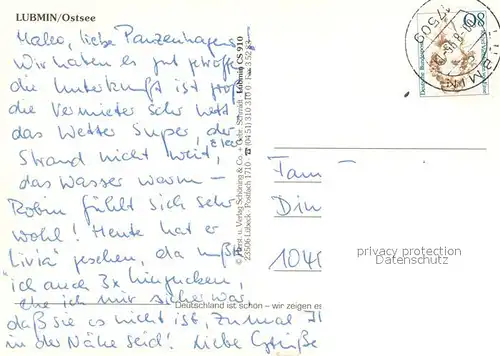 LUBMIN/Ostsee
Hallo, liebe Panzenhagens,
Wir haben es gut getroffen
die Unterkunft ist toll
die Vermieter sehr nett
das Wetter Super, der
Strand nicht weit,
das Wasser warm –
Robin fühlt sich sehr
wohl! Heute hat er
"Livia" gesehen, da mußte
ich auch 3x hingucken,
ehe ich mir sicher war,
daß sie es nicht ist, zumal I
in der Nähe seid! Liebe Grüße
Lubmin CS 910
© Kunst u. Verlag Schöning & Co. + Gebr. Schmidt
23506 Lübeck · Postfach 1710 · ☎ (04 51) 310 310 0 · Fax 3 52 83
Deutschland ist schön – wir zeigen es
Deutsche Bundespost
80
LUBMIN
17509
Fam
Din
104
privacy protection
Datenschutz